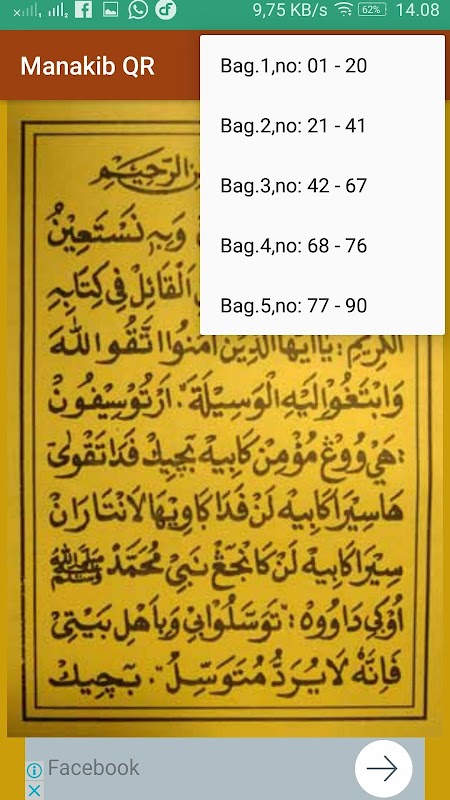 9,75 KB/s 62% 14.08
Manakib QR
Bag.1,no: 01 - 20
Bag.2,no: 21 - 41
Bag.3,no: 42 - 67
Bag.4,no: 68 - 76
Bag.5,no: 77 - 90
الرَّحِيْمِ
وَبِهِ نَسْتَعِيْنُ
الْقَائِلْ فِي كِتَابِهِ
الْكَرِيْمِ: يَاأَيُّهَا الَّذِيْنَ اٰمَنُوا اتَّقُوا اللهَ
وَابْتَغُوْا اِلَيْهِ الْوَسِيْلَةَ. اَرْتُوْسِيْفُوْنْ
: هَيْ وُوْڠْ مُؤْمِنْ كَابِيْهْ بَچِيْكْ فَدَا تَقْوٰى
هَا سِيْرَا كَابِيْهْ لَنْ فَدَا كَاوِيْهَا لَانْتَارَانْ
سِيْرَا كَابِيْهْ لَنْ كَانْجَڠْ نَبِيْ مُحَمَّدْ ﷺ
اُوْكِيْ دَاوُوْهْ: "تَوَسَّلُوْابِيْ وَبِأَهْلِ بَيْتِيْ
فَاِنَّهُ لَا يُرَدُّ مُتَوَسِّلٌ". بَچِيْكْ
Facebook